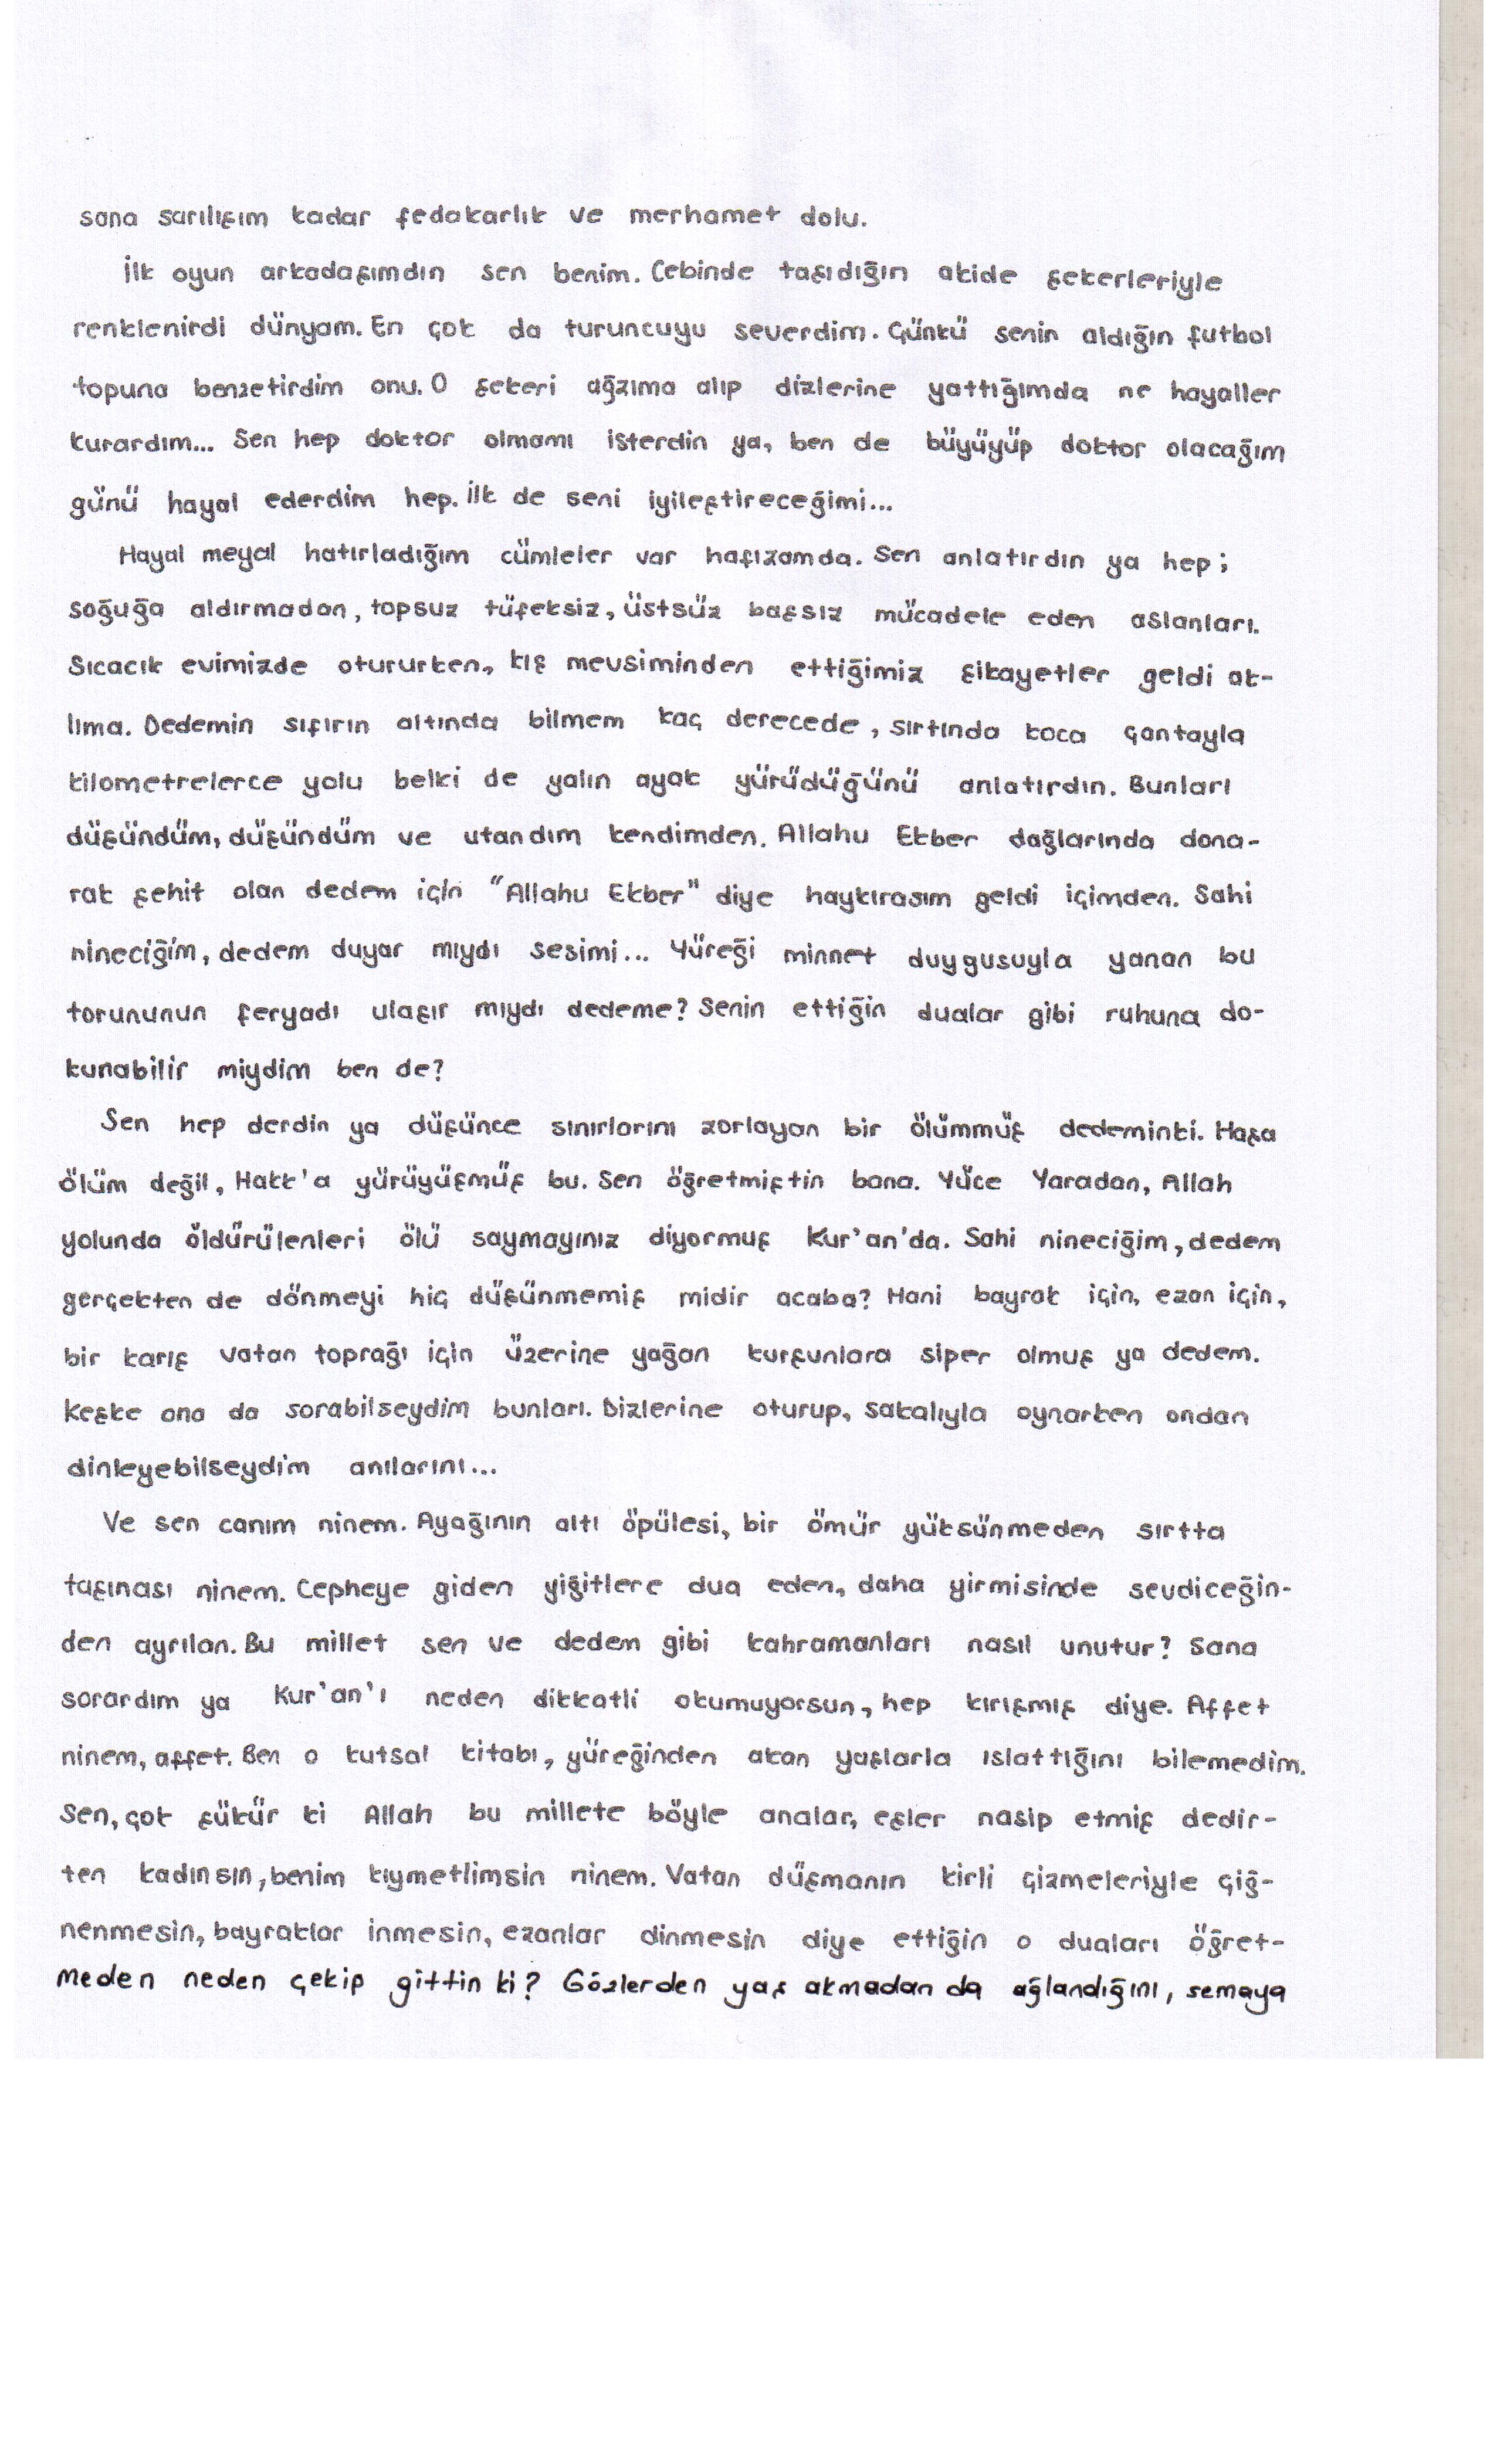 sana sarılışım kadar fedakarlık ve merhamet dolu.
İlk oyun arkadaşımdın sen benim. Cebinde taşıdığın akide şekerleriyle
renklenirdi dünyam. En çok da turuncuyu severdim. Çünkü senin aldığın futbol
topuna benzetirdim onu. O şekeri ağzıma alıp dizlerine yattığımda ne hayaller
kurardım... Sen hep doktor olmamı isterdin ya, ben de büyüyüp doktor olacağım
günü hayal ederdim hep. İlk de seni iyileştireceğimi...
Hayal meyal hatırladığım cümleler var hafızamda. Sen anlatırdın ya hep;
soğuğa aldırmadan, topsuz tüfeksiz, üstsüz başsız mücadele eden aslanları.
Sıcacık evimizde otururken, kış mevsiminden ettiğimiz şikayetler geldi ak-
lıma. Dedemin sıfırın altında bilmem kaç derecede, sırtında koca çantayla
kilometrelerce yolu belki de yalın ayak yürüdüğünü anlatırdın. Bunları
düşündüm, düşündüm ve utandım kendimden. Allahu Ekber dağlarında dona-
rak şehit olan dedem için "Allahu Ekber" diye haykırasım geldi içimden. Sahi
nineciğim, dedem duyar mıydı sesimi... Yüreği minnet duygusuyla yanan bu
torununun feryadı ulaşır mıydı dedeme? Senin ettiğin dualar gibi ruhuna do-
kunabilir miydim ben de?
Sen hep derdin ya düşünce sınırlarını zorlayan bir ölümmüş dedeminki. Haşa
ölüm değil, Hakk'a yürüyüşmüş bu. Sen öğretmiştin bana. Yüce Yaradan, Allah
yolunda öldürülenleri ölü saymayınız diyormuş Kur'an'da. Sahi nineciğim, dedem
gerçekten de dönmeyi hiç düşünmemiş midir acaba? Hani bayrak için, ezan için,
bir karış vatan toprağı için üzerine yağan kurşunlara siper olmuş ya dedem.
Keşke ona da sorabilseydim bunları. Dizlerine oturup, sakalıyla oynarken ondan
dinleyebilseydim anılarını...
Ve sen canım ninem. Ayağının altı öpülesi, bir ömür yüksünmeden sırtta
taşınası ninem. Cepheye giden yiğitlere dua eden, daha yirmisinde sevdiceğin-
den ayrılan. Bu millet sen ve dedem gibi kahramanları nasıl unutur? Sana
sorardım ya Kur'an'ı neden dikkatli okumuyorsun, hep kırışmış diye. Affet
ninem, affet. Ben o kutsal kitabı, yüreğinden akan yaşlarla ıslattığını bilemedim.
Sen, çok şükür ki Allah bu millete böyle analar, eşler nasip etmiş dedir-
ten kadınsın, benim kıymetlimsin ninem. Vatan düşmanın kirli çizmeleriyle çiğ-
nenmesin, bayraklar inmesin, ezanlar dinmesin diye ettiğin o duaları öğret-
meden neden çekip gittin ki? Gözlerden yaş akmadan da ağlandığını, semaya